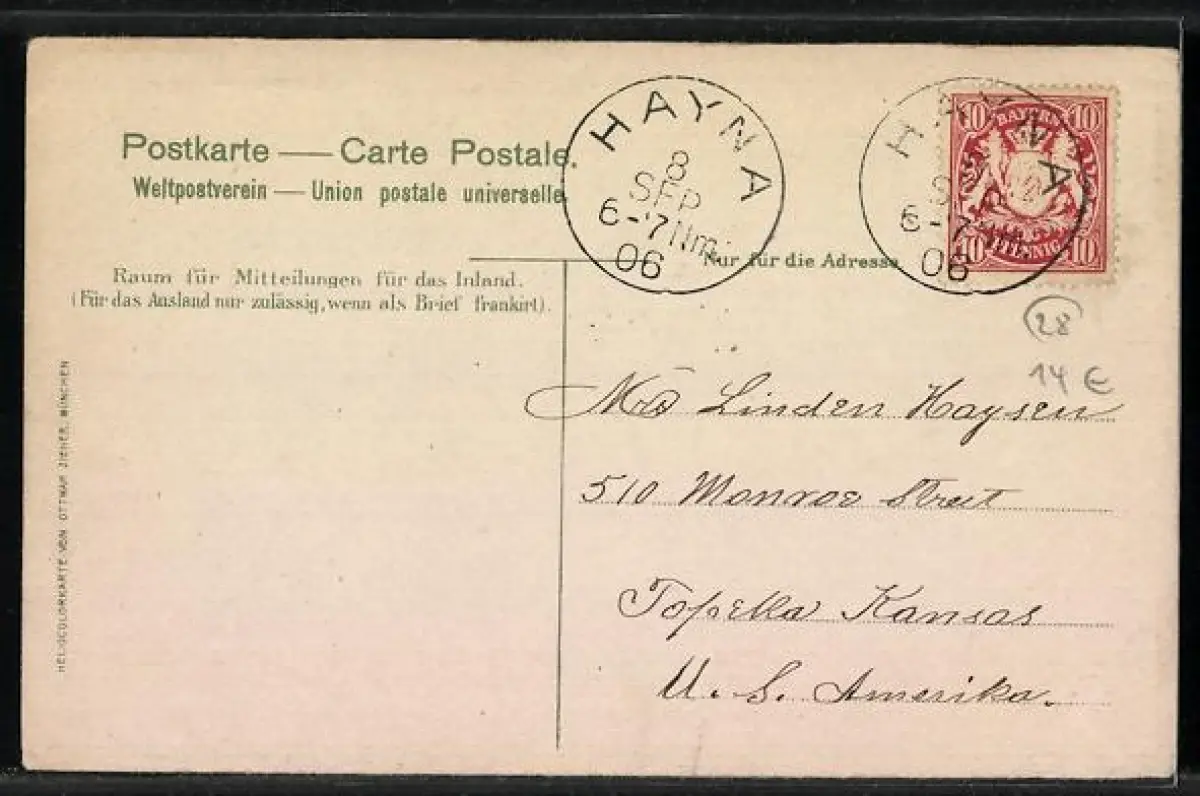 Postkarte — Carte Postale.
Weltpostverein — Union postale universelle.
HAYNA
8
SEP
6-7Nm.
06
HAYNA
8
SEP
6-7Nm.
06
10 BAYERN 10
10 PFENNIG 10
Nur für die Adresse
Raum für Mitteilungen für das Inland.
(Für das Ausland nur zulässig, wenn als Brief frankirt).
28
14 €
Mrs Linden Haysen
510 Monroe Street
Topekka Kansas
U. S. Amerika.
HELIOCOLORKARTE VON OTTMAR ZIEHER, MÜNCHEN